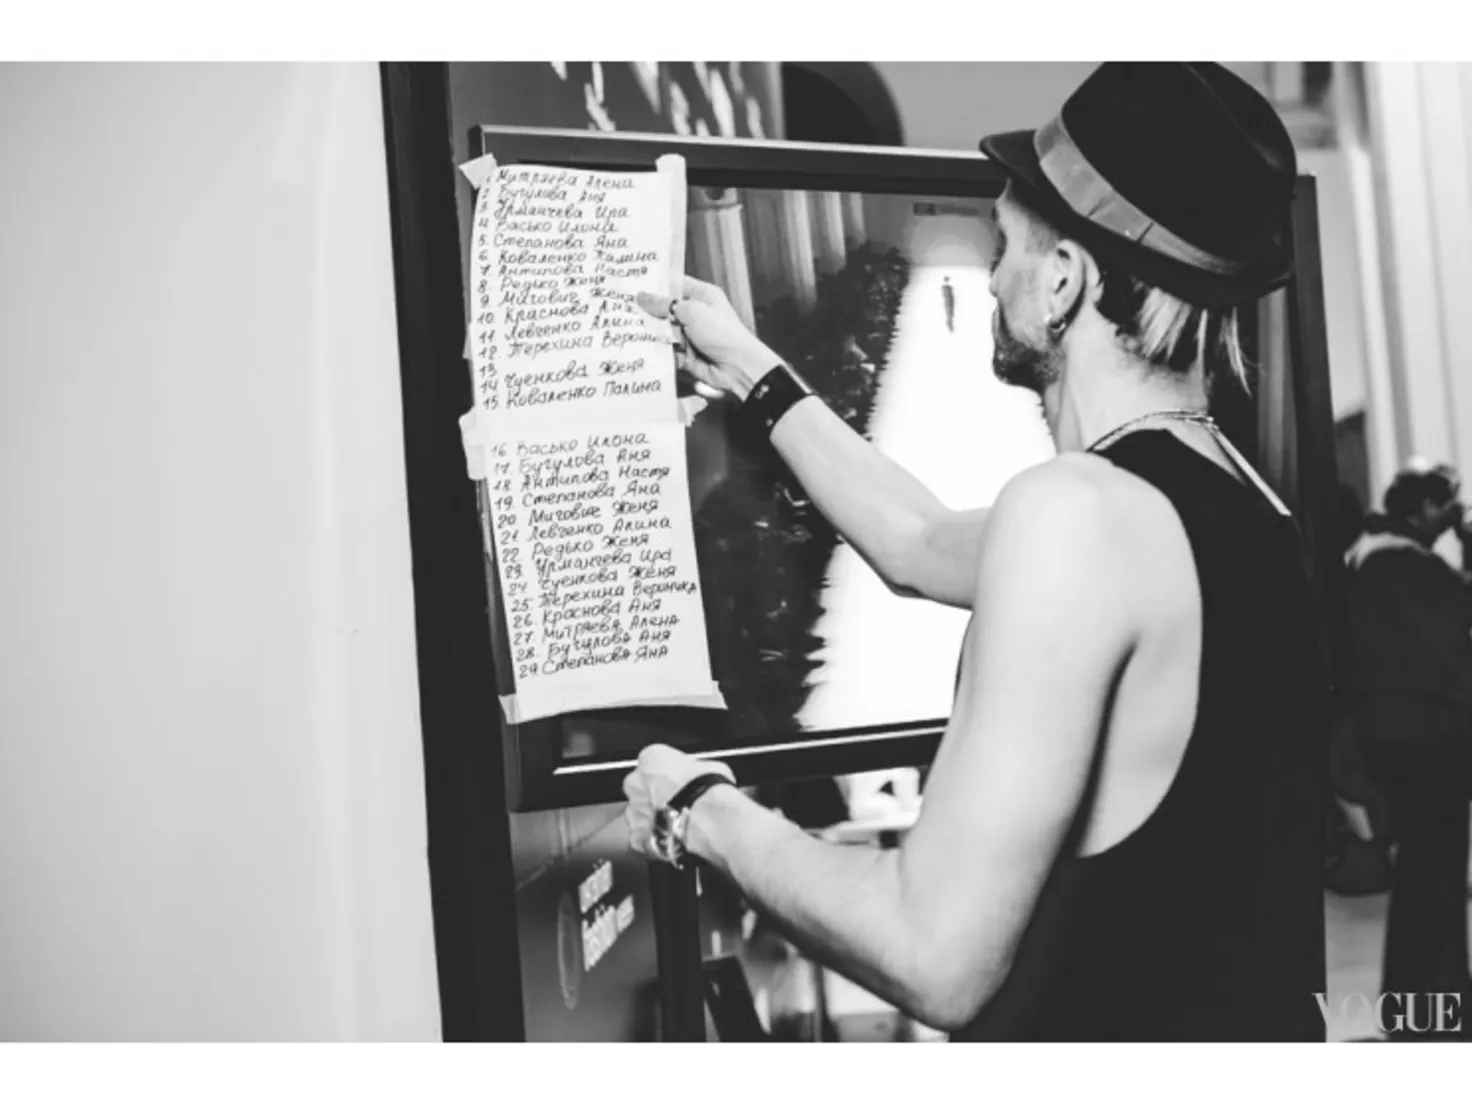 1 Митряева Алена
2 Бугулова Аня
3 Урманчева Ира
4 Васько Илона
5. Степанова Яна
6 Коваленко Полина
7. Антипова Настя
8. Редько Женя
9. Мигович Женя
10. Краснова Аня
11 Левченко Алина
12. Терехина Вероника
13
14 Чуенкова Женя
15. Коваленко Палина
16 Васько Илона
17. Бугулова Аня
18. Антипова Настя
19. Степанова Яна
20 Мигович Женя
21. Левченко Алина
22. Редько Женя
23. Урманчева Ира
24 Чуенкова Женя
25. Терехина Вероника
26. Краснова Аня
27. Митряева Алена
28. Бугулова Аня
29. Степанова Яна
fashion week
VOGUE